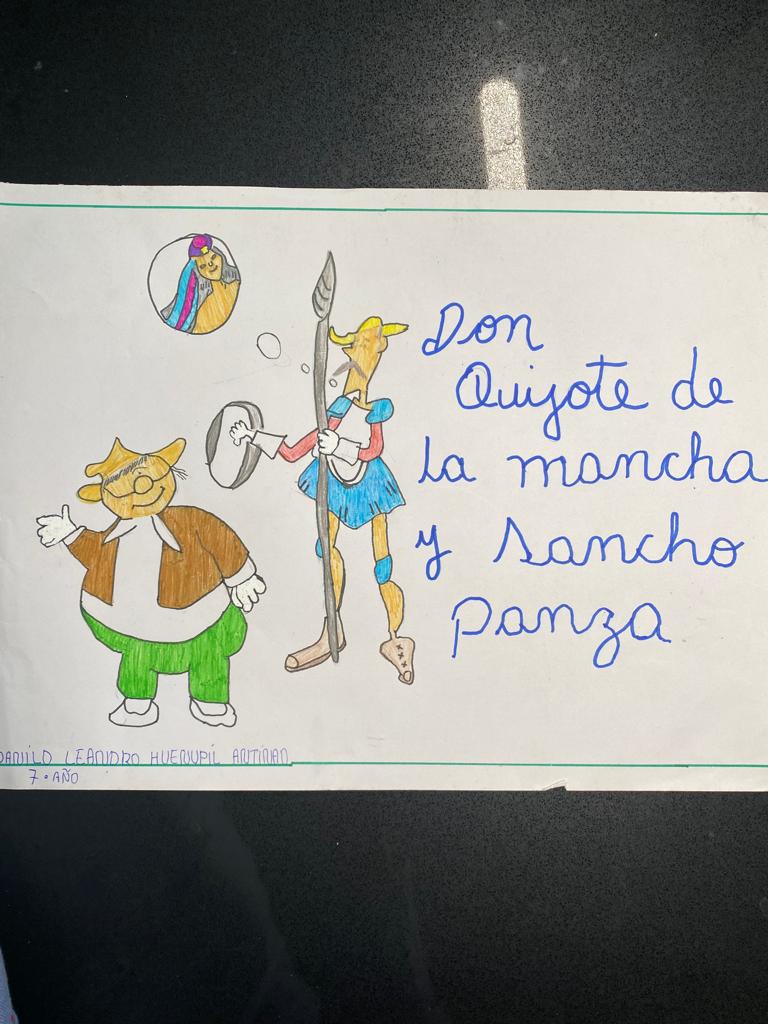 Don
Quijote de
la mancha
y Sancho
panza
DANILO LEANDRO HUENUPIL ANTIÑAN
7.AÑO